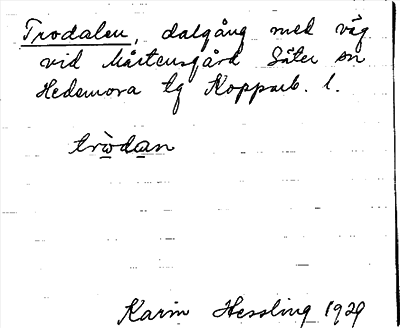 Trodalen, dalgång med väg
vid Mårtensgård Säter sn
Hedemora tg Kopparb. l.
tròdan
Karin Hessling 1929